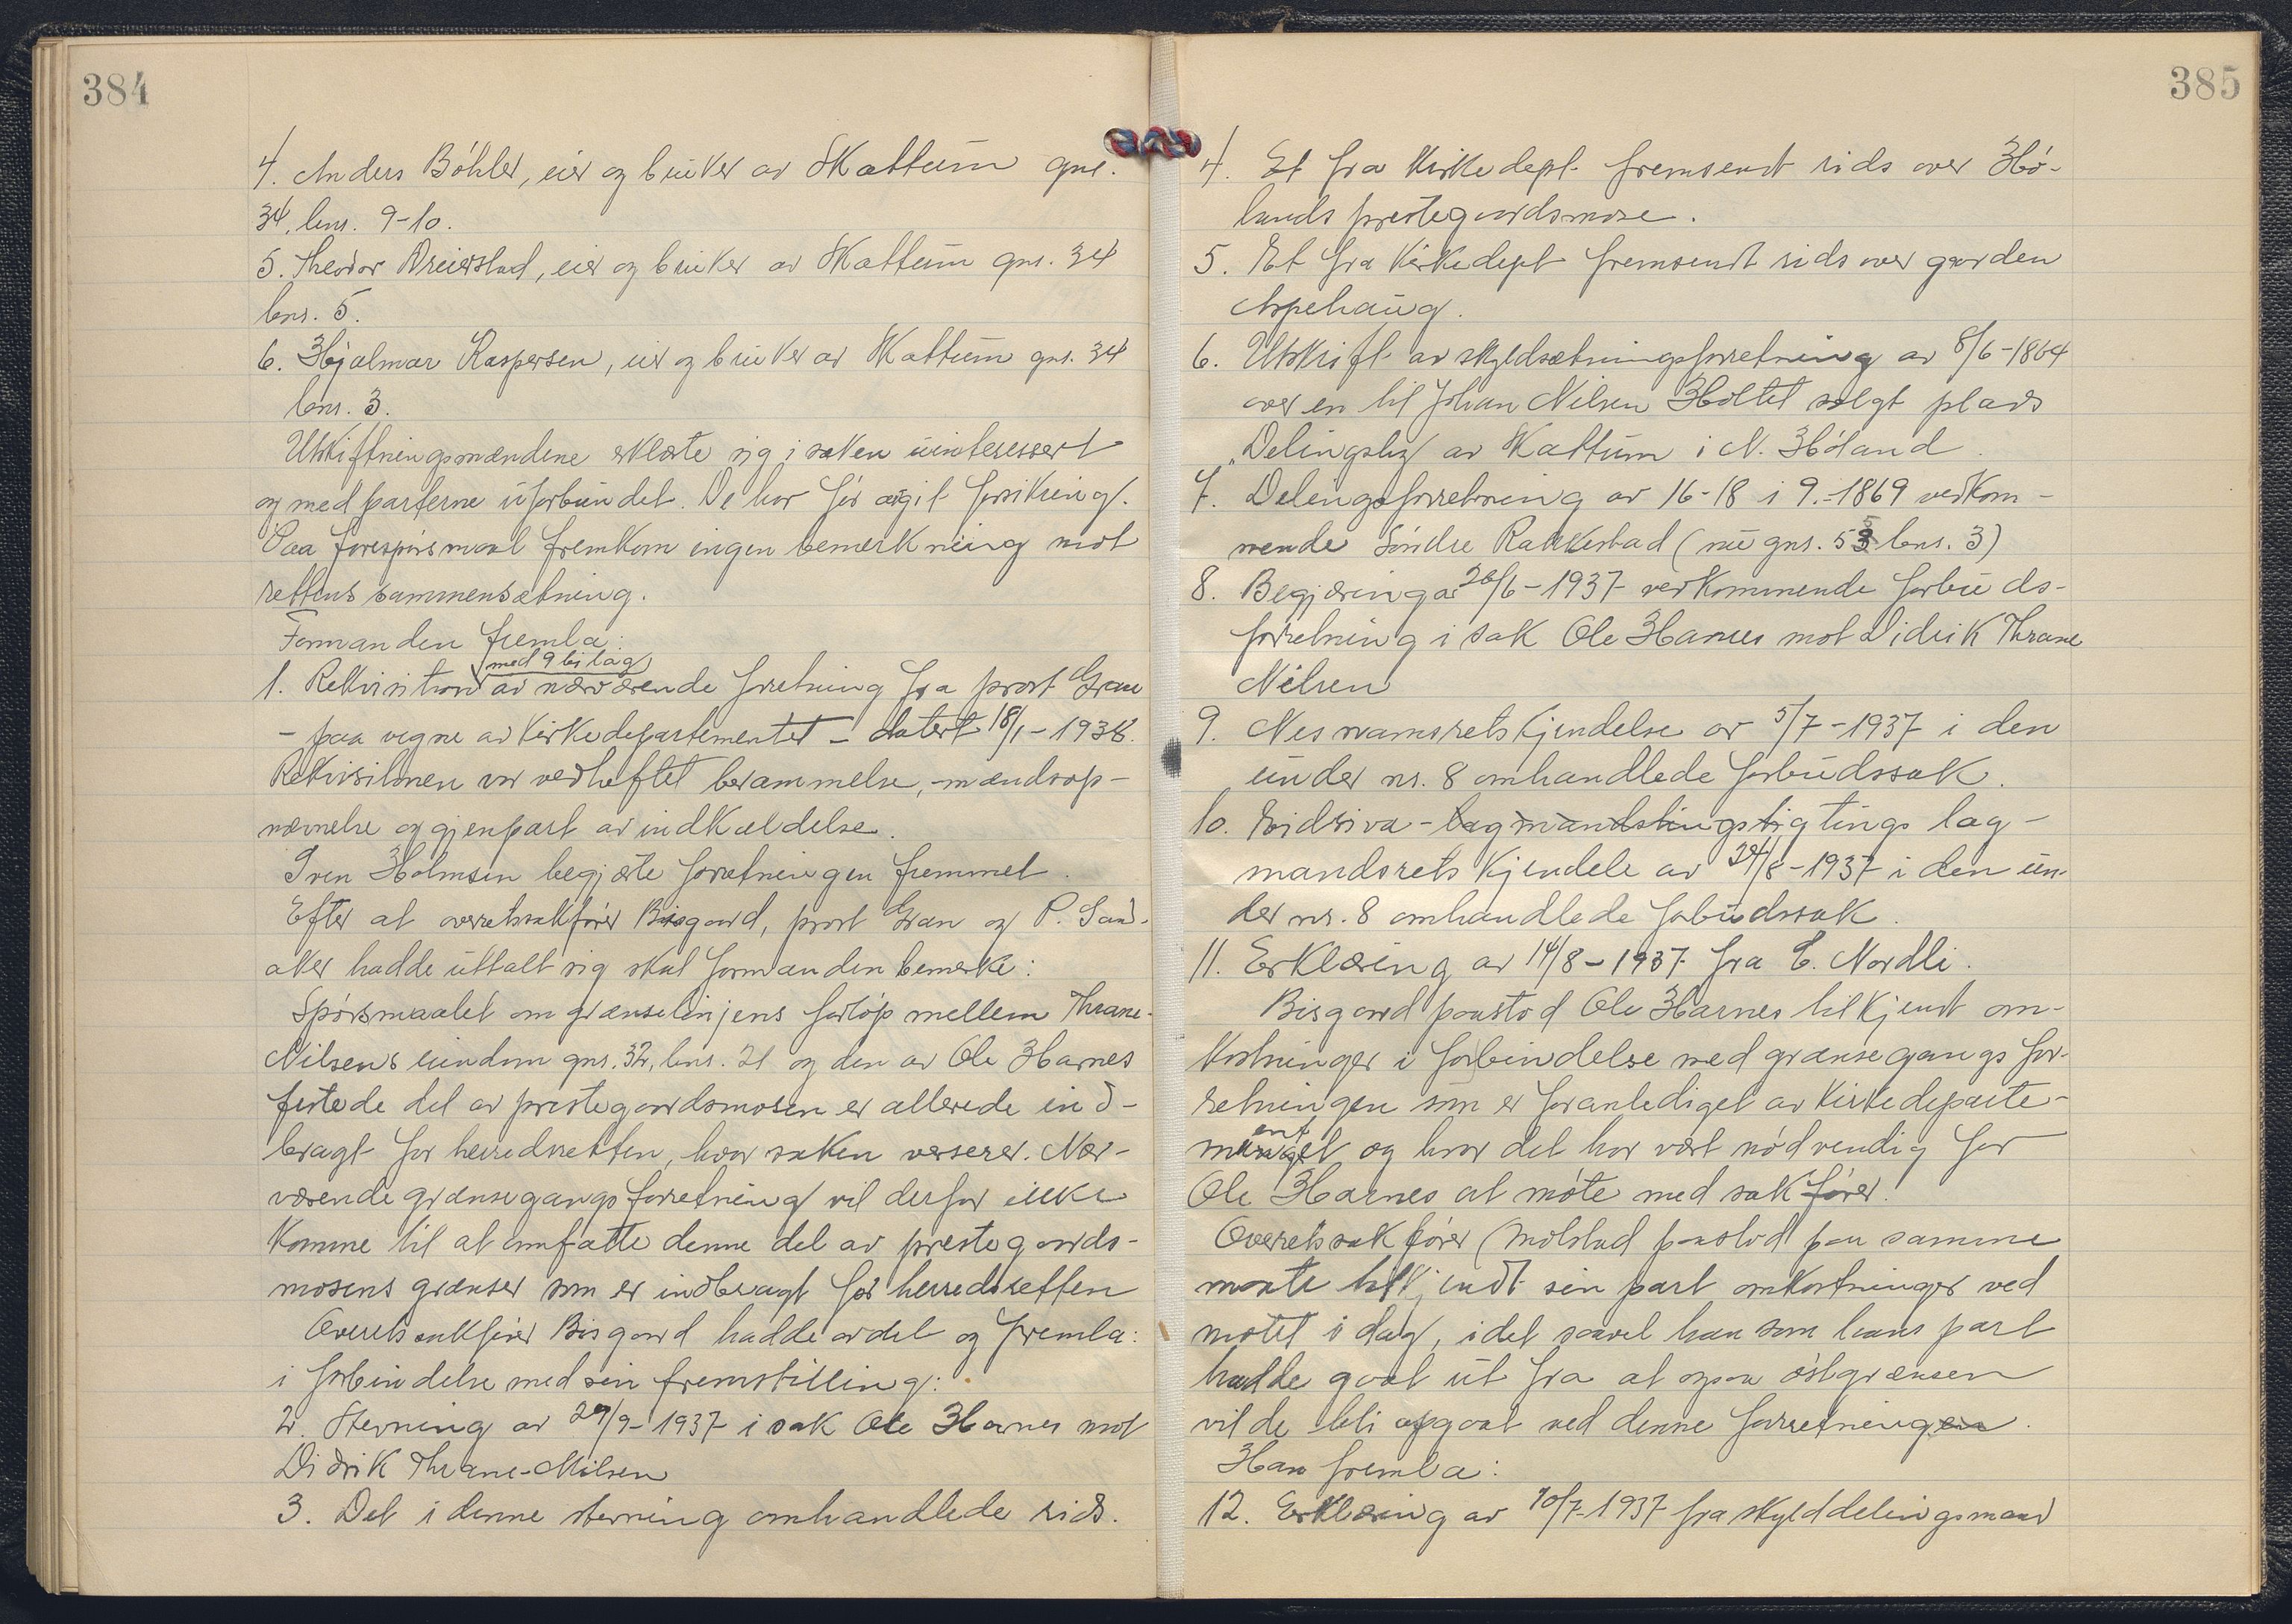 384
4. Anders Böhler, eier og bruker av Kattum gnr.
34, bnr. 9-10.
5. Theodor Dreierstad, eier og bruker av Kattum gnr. 34
bnr. 5.
6. Hjalmar Kaspersen, eier og bruker av Kattum gnr. 34
bnr. 3.
Utskiftningsmændene erklærte sig i saken uinteressert
og med parterne uforbundet. De har før avgit forsikring.
Paa forespørsmaal fremkom ingen bemerkning mot
rettens sammensætning.
Formanden fremla:
med 9 bilag
1. Rekvisition av nærværende forretning fra prost Gran
- paa vegne av Kirkedepartementet - datert 18/1-1938.
Rekvisitionen var vedheftet berammelse, -mændsop-
nævnelse og gjenpart av indkaldelse.
Iven Holmsen begjærte forretningen fremmet.
Efter at overretssakfører Bisgaard, prost Gran og P. Saad-
aker hadde uttalt sig skal formanden bemerke:
Spørsmaalet om grænselinjens forløp mellem Thrane-
Nilsens eiendom gnr. 32, bnr. 21 og den av Ole Harnes
festede del av prestegaardsmosen er allerede ind-
bragt for herredsretten, hvor saken verserer. Nær-
værende grænsegangsforretning vil derfor ikke
komme til at omfatte denne del av prestegaards-
mosens grænser som er indbragt for herredsretten
Overretssakfører Bisgaard hadde ordet og fremla:
i forbindelse med sin fremstilling:
2. Stevning av 29/9-1937 i sak Ole Harnes mot
Didrik Thrane-Nilsen
3. Det i denne stevning omhandlede rids.
385
4. Et fra Kirkedept. fremsendt rids over Hø-
lands prestegaardsmose.
5. Et fra Kirkedept fremsendt rids over garden
Aspehaug.
6. Utskrift av skyldsætningsforretning av 8/6-1864
over en til Johan Nilsen Holtet solgt plads
„Delingsli" av Kattum i N. Höland.
7. Delingsforretning av 16-18 i 9.-1869 vedkom-
mende Söndre Rakkestad (nu gnr. 53 bnr. 3)
8. Begjæring av 26/6-1937 vedkommende forbuds-
forretning i sak Ole Harnes mot Didrik Thrane
Nilsen
9. Nes namsrets kjendelse av 5/7-1937 i den
under nr. 8 omhandlede forbudssak.
10. Eidsiva-lagmandstingstig tings lag-
mandsrets kjendele av 24/8-1937 i den un-
der nr. 8 omhandlede forbudssak.
11. Erklæring av 14/8-1937 fra E. Nordli.
Bisgaard paastod Ole Harnes tilkjendt om-
kostninger i forbindelse med grænsegangsfor-
retningen som er foranlediget av Kirkedeparte-
mentet og hvor det har vært nødvendig for
Ole Harnes at møte med sakfører.
Overretssakfører Molstad paastod paa samme
maate tilkjendt sin part omkostninger ved
møtet i dag, idet saavel han som hans part
hadde gaat ut fra at ogsaa østgrænsen
vilde bli opgaat ved denne forretningen.
Han fremla:
12. Erklæring av 10/7-1937 fra skylddelingsmand